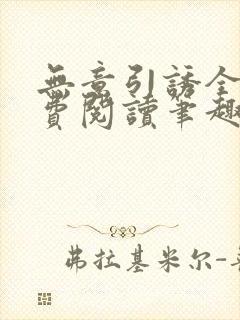 無意引誘全
費閱讀筆趣
弗拉基米尔-